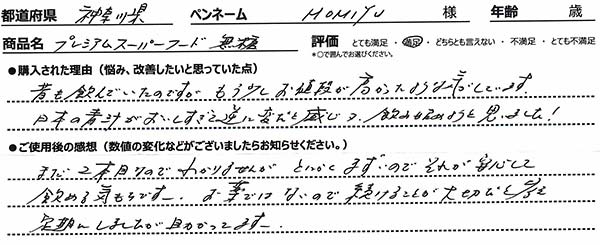 都道府県 神奈川県 ペンネーム HOMIYU 様 年齢 歳
商品名 プレミアムスーパーフード 無糖 評価 とても満足・満足・どちらとも言えない・不満足・とても不満足
*○で囲んでお選びください。
●購入された理由（悩み、改善したいと思っていた点）
昔も飲んでいたのですが もう少しお値段が高かったような気がしています
日本の青汁がおいしすぎて逆に変だと感じて、飲み始めようと思いました!
●ご使用後の感想（数値の変化などがございましたらお知らせください。）
まだ2本目なのでわかりませんが とにかくまずいので それが安心して
飲める気もちです。 お薬ではないので続けることが大切だと考え
定期にしましたが助かってます。